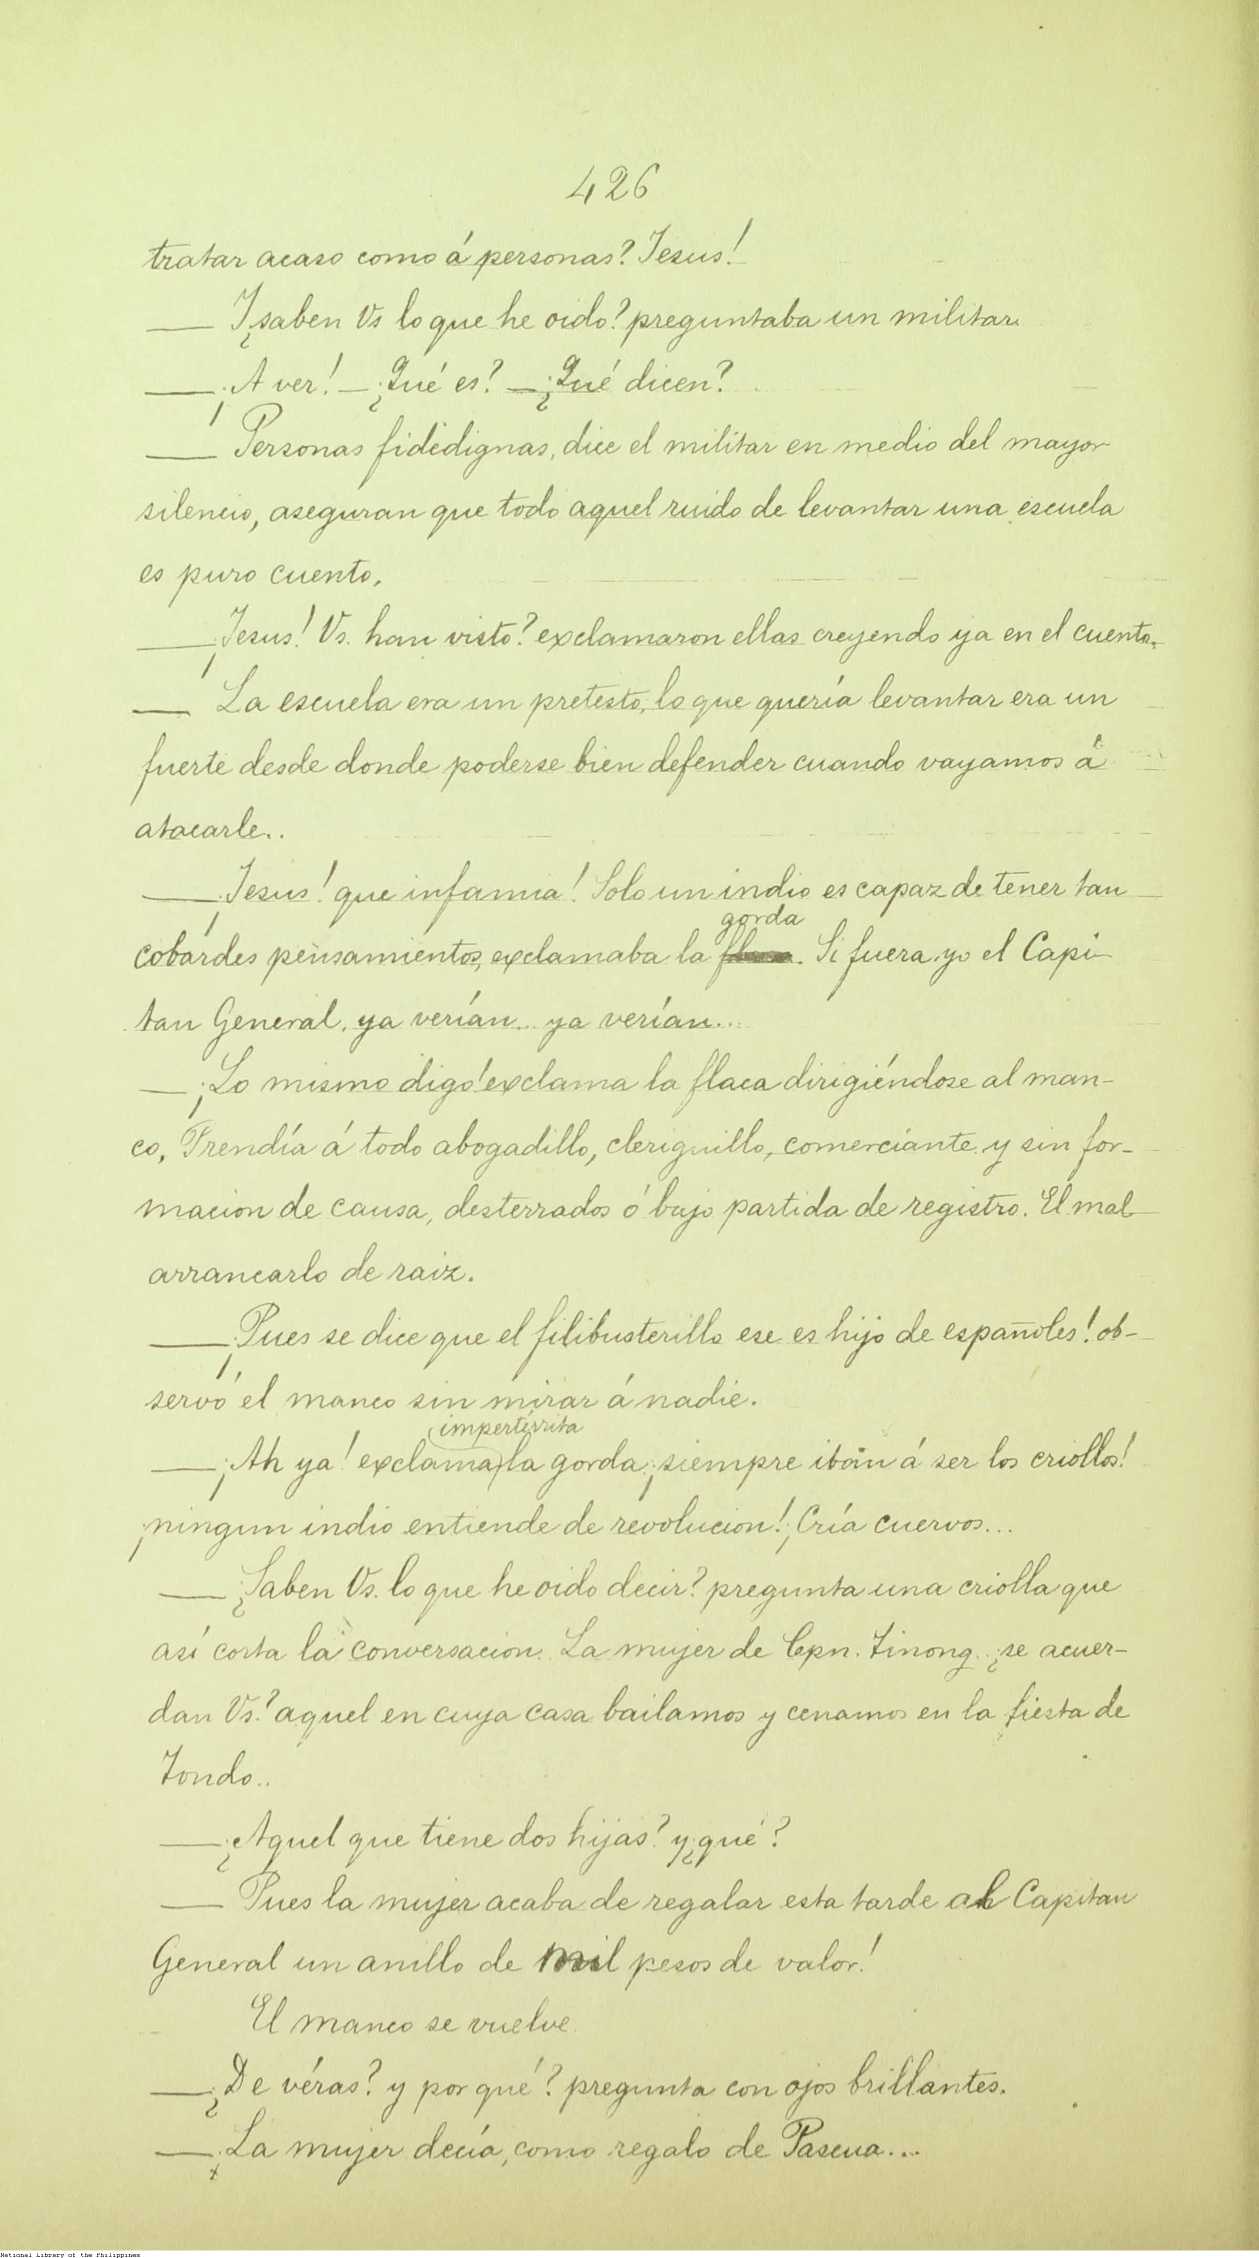 426
tratar acaso como á personas? Jesus!
— Y ¿saben Vs lo que he oido? preguntaba un militar.
— ¡A ver! — ¿Qué es? — ¿Qué dicen?
— Personas fidedignas, dice el militar en medio del mayor
silencio, aseguran que todo aquel ruido de levantar una escuela
es puro cuento.
— ¡Jesus! Vs. han visto? exclamaron ellas creyendo ya en el cuento.
— La escuela era un pretesto, lo que quería levantar era un
fuerte desde donde poderse bien defender cuando vayamos á
atacarle..
— ¡Jesus! que infamia! Solo un indio es capaz de tener tan
gorda
cobardes pensamientos, exclamaba la flaca. Si fuera yo el Capi-
tan General, ya verían... ya verían...
— ¡Lo mismo digo! exclama la flaca dirigiéndose al man-
co, Prendía á todo abogadillo, cleriguillo, comerciante y sin for-
macion de causa, desterrados ó bajo partida de registro. El mal
arrancarlo de raiz.
— ¡Pues se dice que el filibusterillo ese es hijo de españoles! ob-
servó el manco sin mirar á nadie.
impertérrita
— ¡Ah ya! exclama la gorda, ¡siempre iban á ser los criollos!
¡ningun indio entiende de revolucion! ¡Cría cuervos...
— ¿Saben Vs. lo que he oido decir? pregunta una criolla que
así corta la conversacion. La mujer de Cpn. Tinong.. ¿se acuer-
dan Vs.? aquel en cuya casa bailamos y cenamos en la fiesta de
Tondo..
— ¿Aquel que tiene dos hijas? y ¿qué?
— Pues la mujer acaba de regalar esta tarde al Capitan
General un anillo de mil pesos de valor!
El manco se vuelve.
— ¿De véras? y por qué? pregunta con ojos brillantes.
— La mujer decía, como regalo de Pascua...
National Library of the Philippines